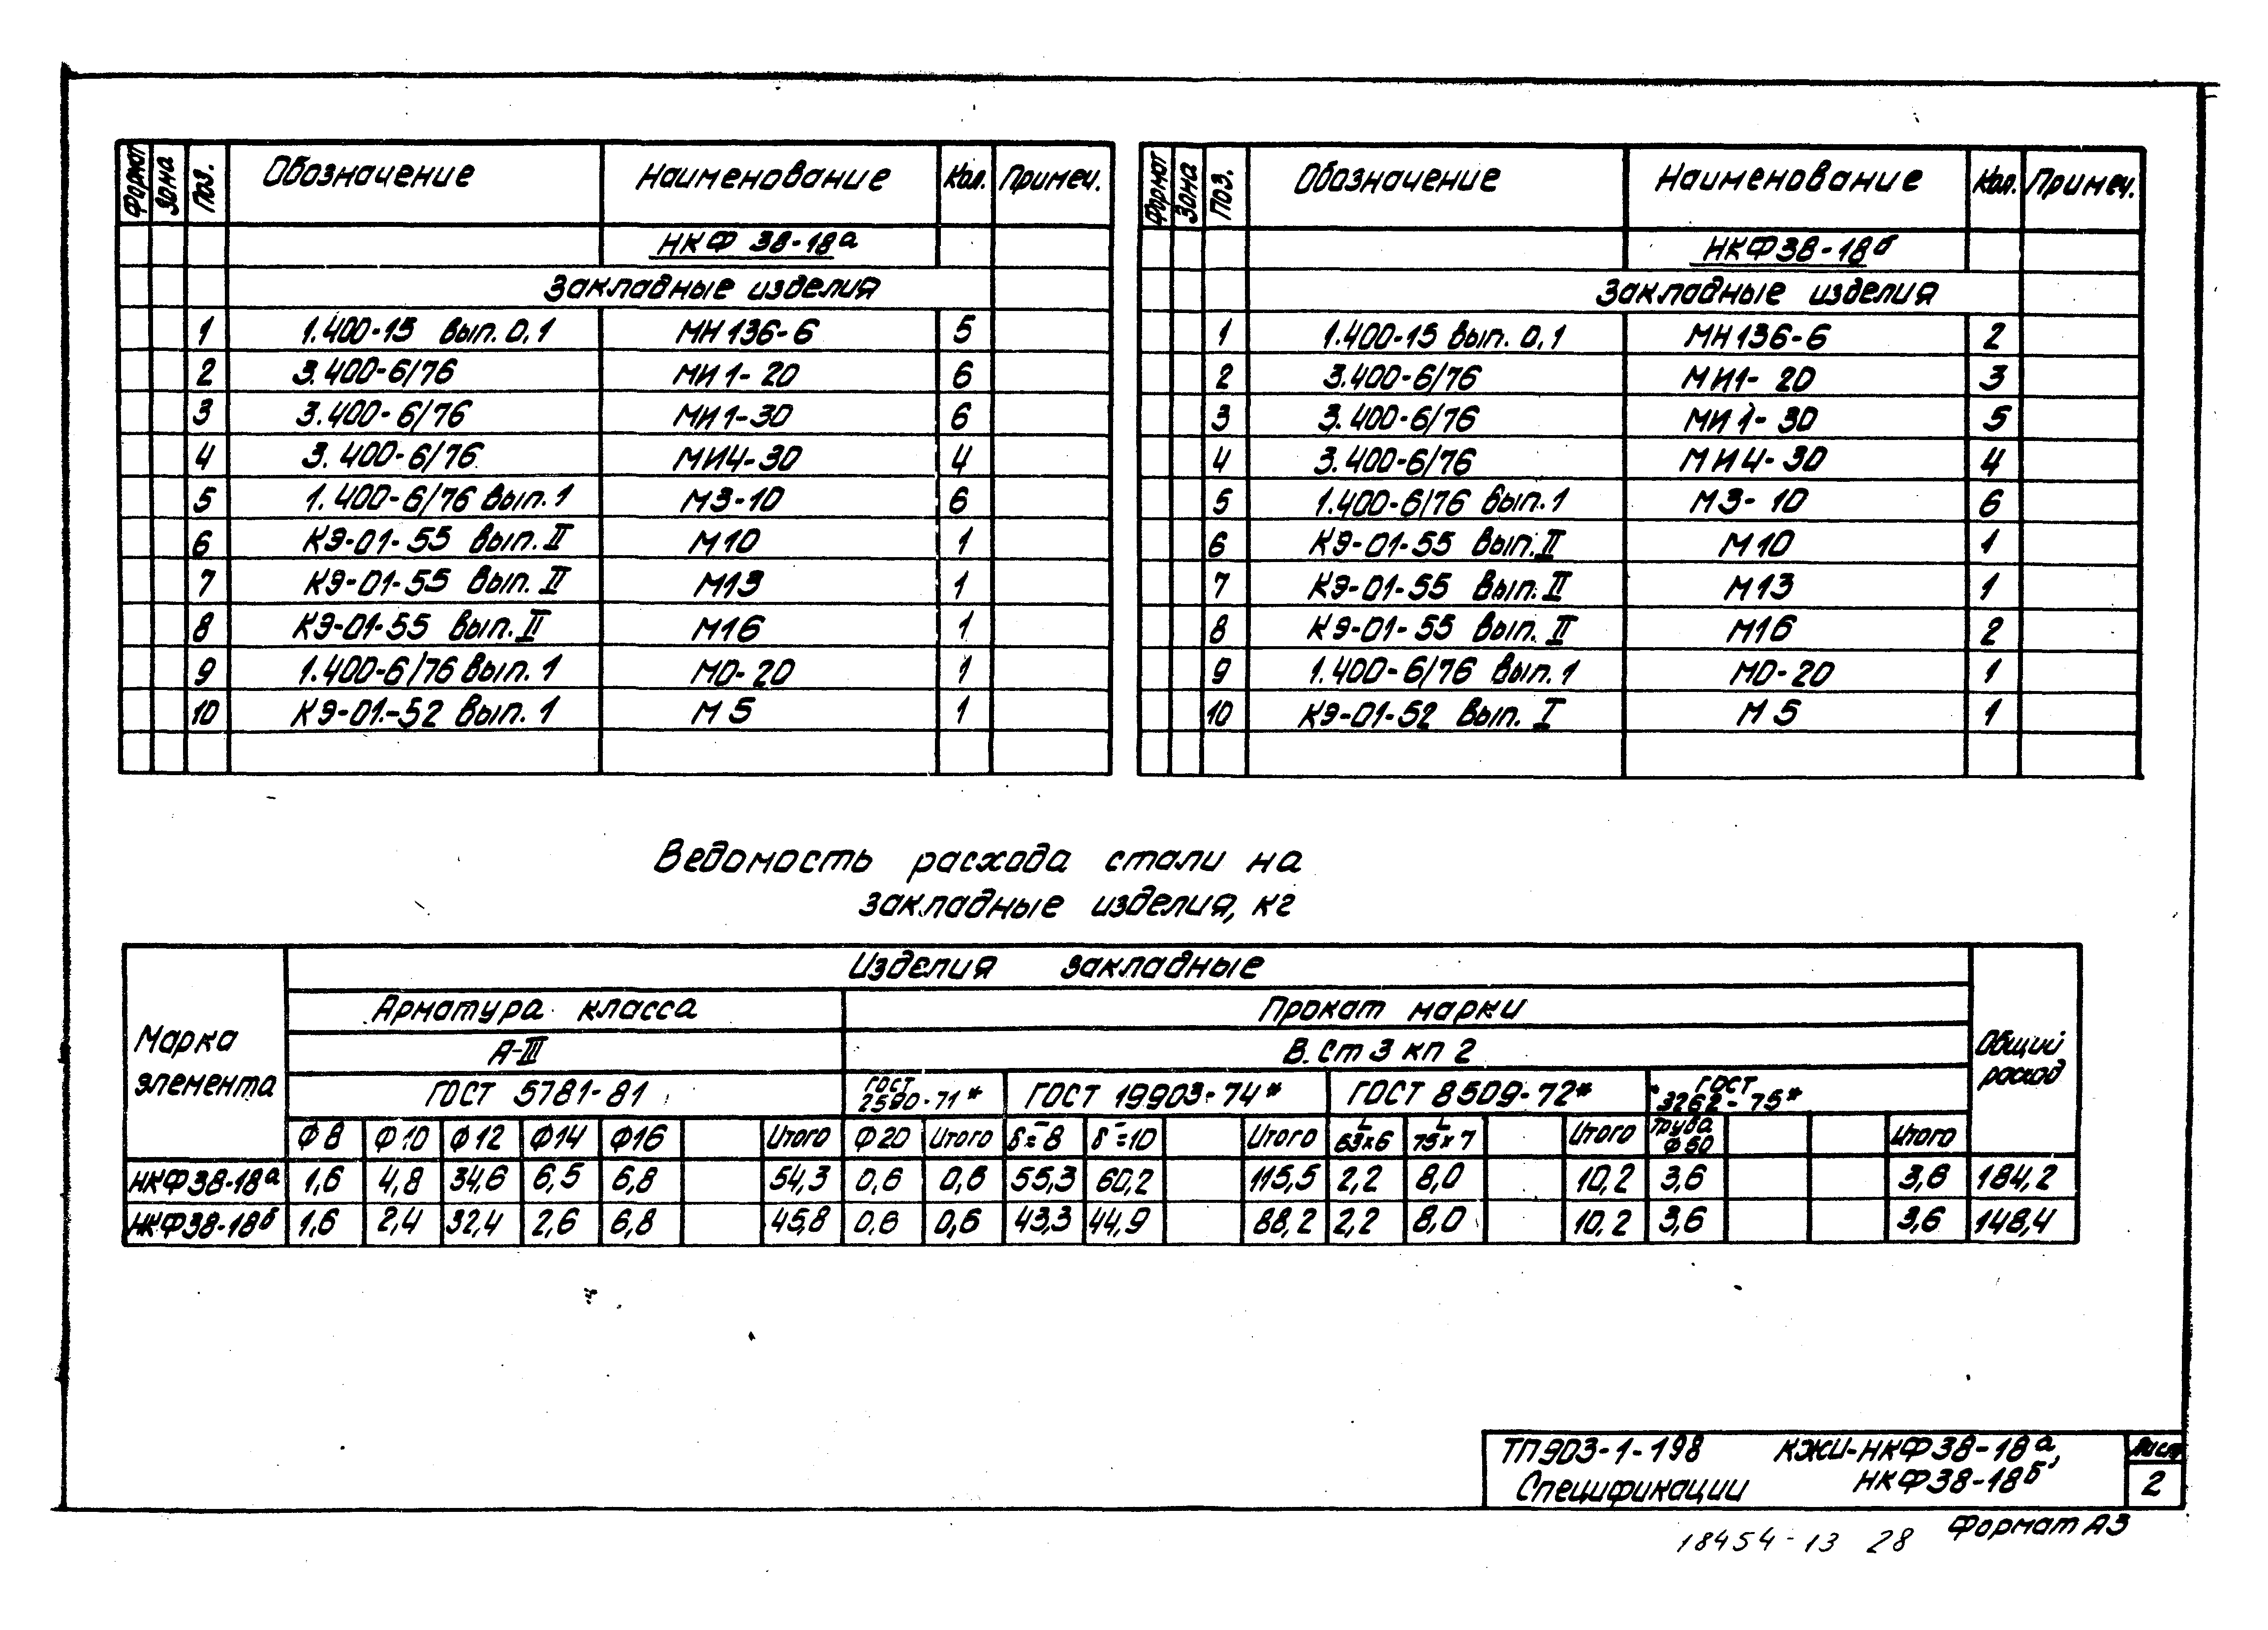 Формат Зона Поз. Обозначение Наименование Кол. Примеч.
НКФ 38-18а
Закладные изделия
1 1.400-15 вып. 0,1 МН 136-6 5
2 3.400-6/76 МИ 1-20 6
3 3.400-6/76 МИ 1-30 6
4 3.400-6/76 МИ4-30 4
5 1.400-6/76 вып. 1 М3-10 6
6 КЭ-01-55 вып. II М10 1
7 КЭ-01-55 вып. II М13 1
8 КЭ-01-55 вып. II М16 1
9 1.400-6/76 вып. 1 МО-20 1
10 КЭ-01-52 вып. 1 М 5 1
Формат Зона Поз. Обозначение Наименование Кол. Примеч.
НКФ38-18б
Закладные изделия
1 1.400-15 вып. 0,1 МН 136-6 2
2 3.400-6/76 МИ1-20 3
3 3.400-6/76 МИ 1-30 5
4 3.400-6/76 МИ 4-30 4
5 1.400-6/76 вып. 1 М3-10 6
6 КЭ-01-55 вып. II М10 1
7 КЭ-01-55 вып. II М13 1
8 КЭ-01-55 вып. II М16 2
9 1.400-6/76 вып. 1 МО-20 1
10 КЭ-01-52 вып. I М 5 1
Ведомость расхода стали на
закладные изделия, кг
Марка элемента Изделия закладные Общий расход
Арматура класса Прокат марки
А-III В.Ст 3 кп 2
ГОСТ 5781-81 ГОСТ 2590-71* ГОСТ 19903-74* ГОСТ 8509-72* ГОСТ 3262-75*
Ф8 Ф10 Ф12 Ф14 Ф16 Итого Ф20 Итого δ=8 δ=10 Итого L 63х6 L 75х7 Итого Труба Ф50 Итого
НКФ38-18а 1,6 4,8 34,6 6,5 6,8 54,3 0,6 0,6 55,3 60,2 115,5 2,2 8,0 10,2 3,6 3,6 184,2
НКФ38-18б 1,6 2,4 32,4 2,6 6,8 45,8 0,6 0,6 43,3 44,9 88,2 2,2 8,0 10,2 3,6 3,6 148,4
ТП903-1-198 КЖИ-НКФ38-18а, Лист
Спецификации НКФ38-18б 2
Формат А3
18454-13 28